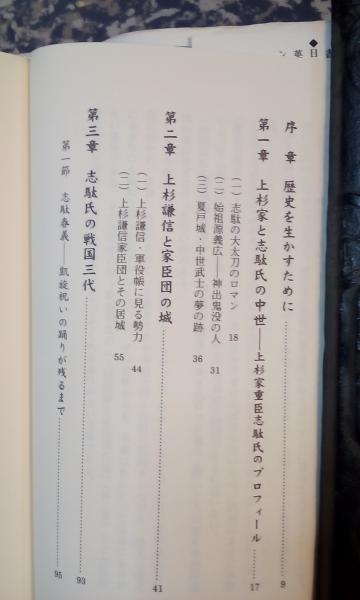 序　章　歴史を生かすために……………………9
第一章　上杉家と志駄氏の中世――上杉家重臣志駄氏のプロフィール……17
（一）志駄の大太刀のロマン　18
（二）始祖源義広――神出鬼没の人　31
（三）夏戸城・中世武士の夢の跡　36
第二章　上杉謙信と家臣団の城……………………41
（一）上杉謙信・軍役帳に見る勢力　44
（二）上杉謙信家臣団とその居城　55
第三章　志駄氏の戦国三代……………………93
第一節　志駄春義――凱旋祝いの踊りが残るまで……………………95